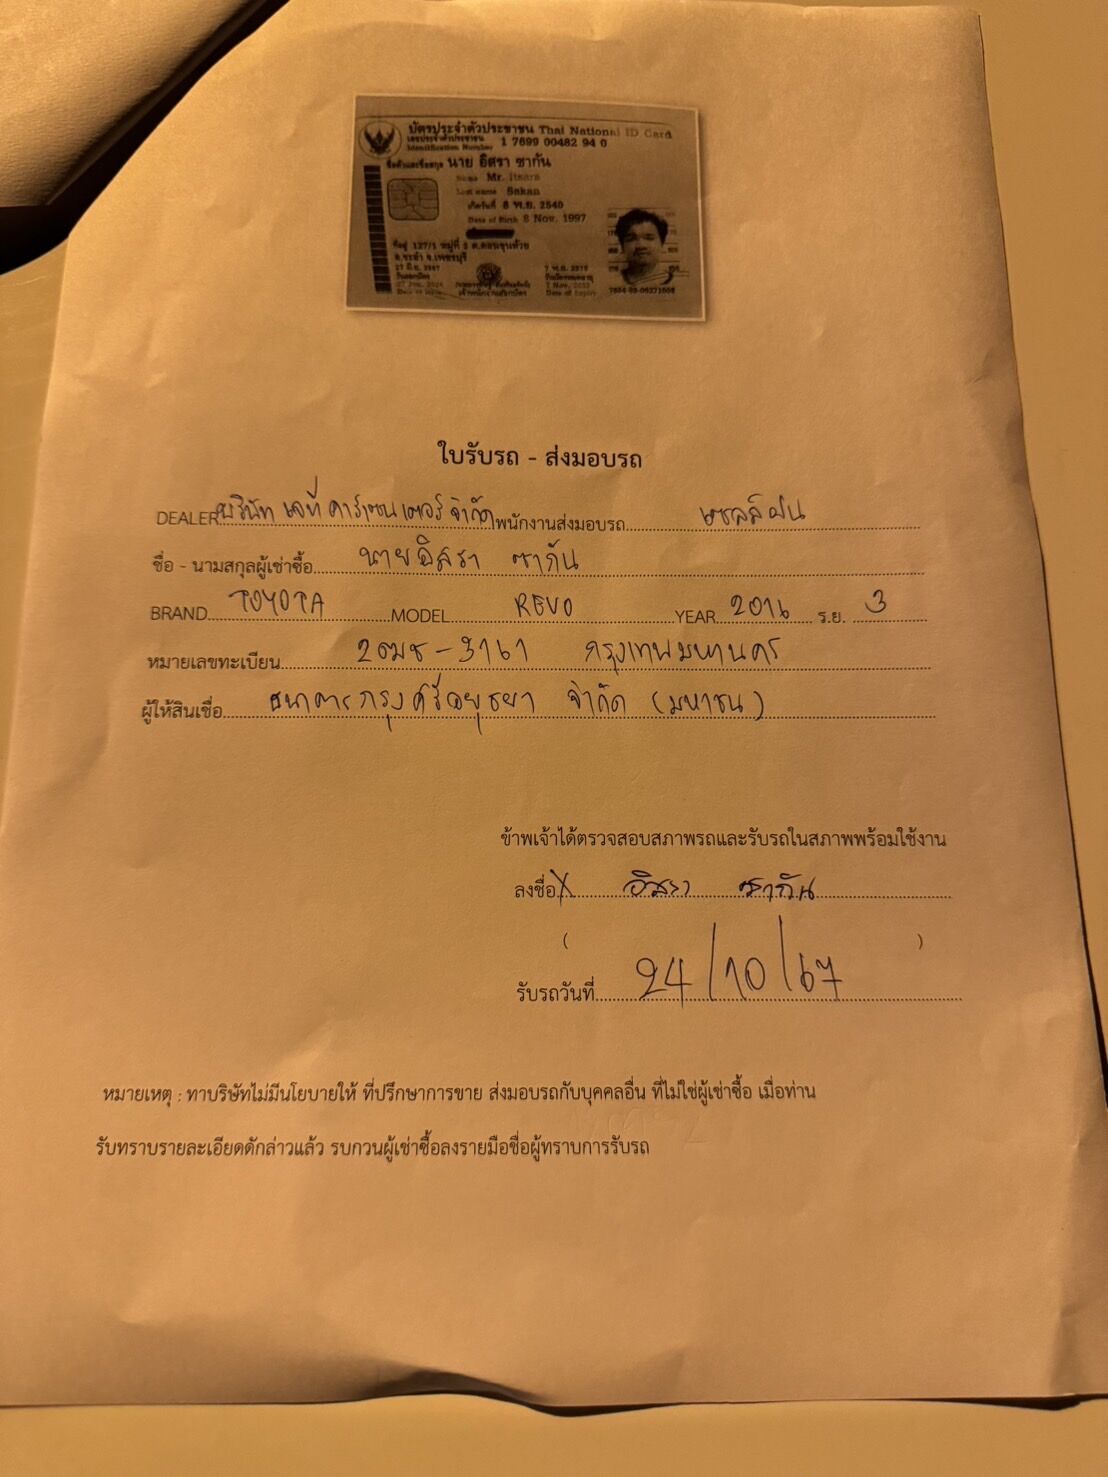 บัตรประจำตัวประชาชน Thai National ID Card
เลขประจำตัวประชาชน 1 7699 00482 94 0
Identification Number
ชื่อตัวและชื่อสกุล นาย อิสรา ซากัน
Name Mr. Itsara
Last name Sakan
เกิดวันที่ 8 พ.ย. 2540
Date of Birth 8 Nov. 1997
ที่อยู่ 127/1 หมู่ที่
จ.เพชรบุรี
ใบรับรถ - ส่งมอบรถ
DEALER บริษัท เจที คาร์เซนเตอร์ จำกัด พนักงานส่งมอบรถ
ชื่อ - นามสกุลผู้เช่าซื้อ นายอิสรา ซากัน
BRAND TOYOTA MODEL REVO YEAR 2016 ร.ย. 3
หมายเลขทะเบียน 2ฒช-3161 กรุงเทพมหานคร
ผู้ให้สินเชื่อ ธนาคารกรุงศรีอยุธยา จำกัด (มหาชน)
ข้าพเจ้าได้ตรวจสอบสภาพรถและรับรถในสภาพพร้อมใช้งาน
ลงชื่อ X อิสรา ซากัน
( )
รับรถวันที่ 24/10/67
หมายเหตุ : ทาบริษัทไม่มีนโยบายให้ ที่ปรึกษาการขาย ส่งมอบรถกับบุคคลอื่น ที่ไม่ใช่ผู้เช่าซื้อ เมื่อท่าน
รับทราบรายละเอียดดักล่าวแล้ว รบกวนผู้เช่าซื้อลงรายมือชื่อผู้ทราบการรับรถ